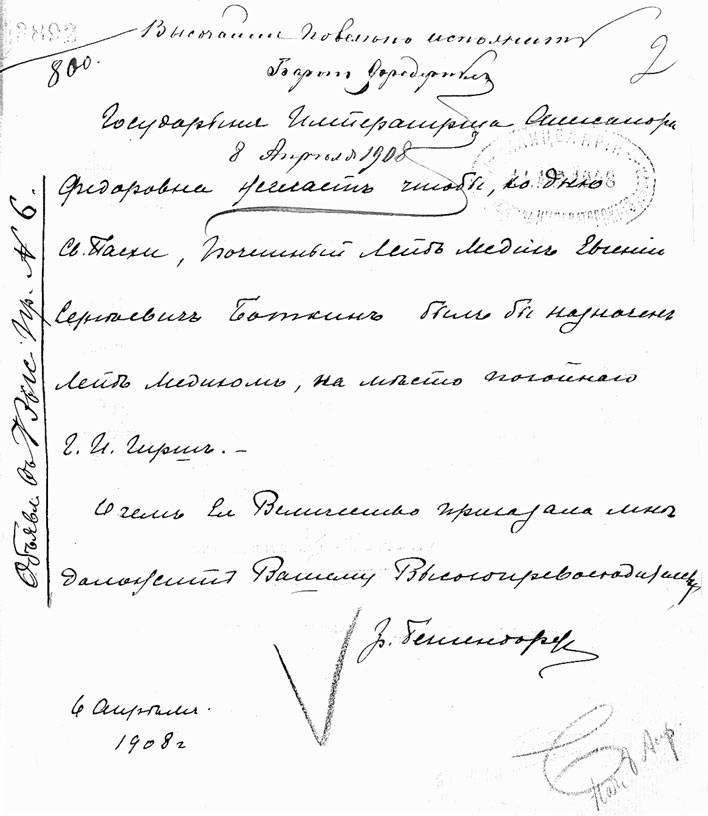 Высочайше повелено исполнить
2
800.
Барон Фредерикс
Государыня Императрица Александра
8 Апреля 1908
Федоровна желаетъ чтобы, ко дню
Св. Пасхи, Почетный Лейбъ Медикъ Евгеній
Сергѣевичъ Боткинъ былъ бы назначенъ
Лейбъ Медикомъ, на мѣсто покойнаго
Г. И. Гиршъ. –
О чемъ Ея Величество приказала мнѣ
доложить Вашему Высокопревосходительству
Гр. Бенкендорфъ
6 Апрѣля.
1908 г
Объявл. въ Выс. Пр. № 6.
8 Апр.